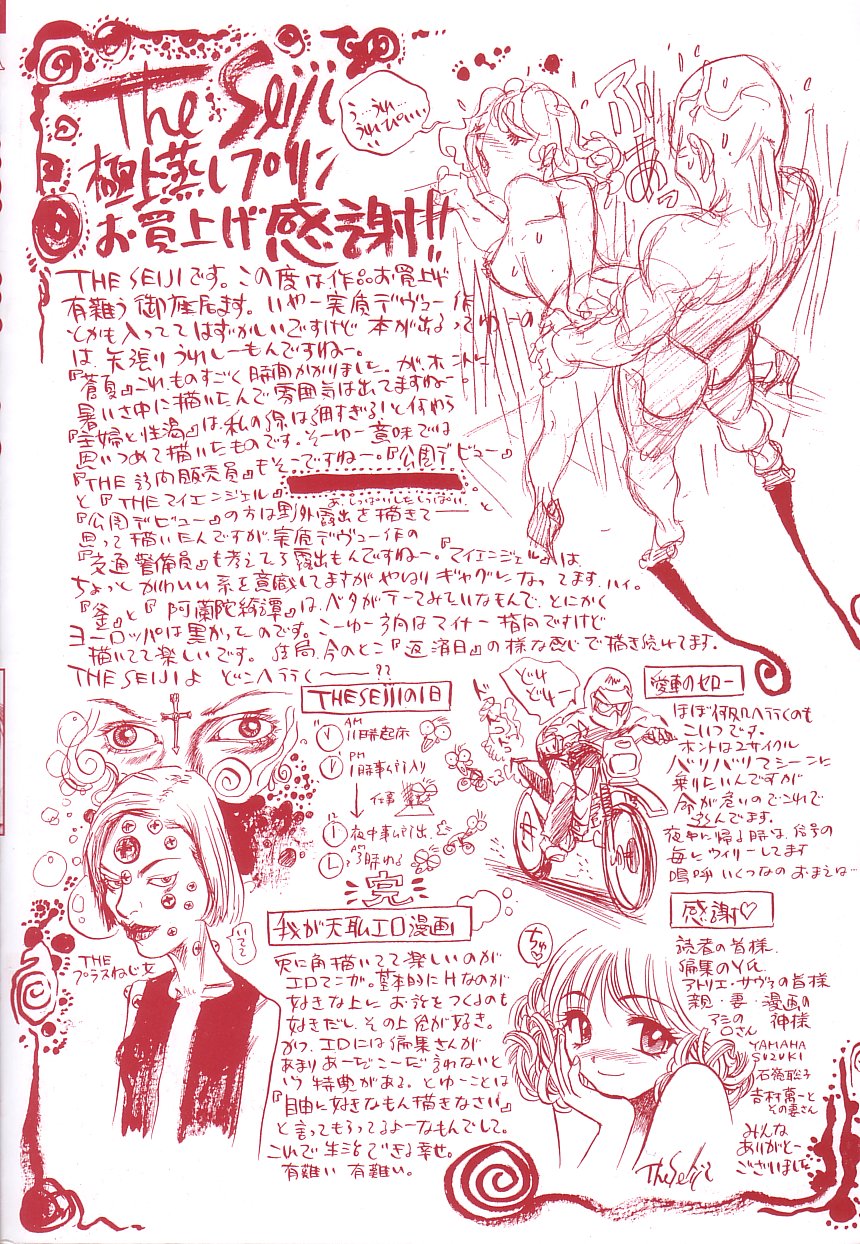 The Seiji
極上蒸しプリン
お買上げ感謝!!
う…うれ…
うれぴいい
ふぁあっ
THE SEIJIです。この度は作品お買上げ
有難う御座居ます。いやー実質デヴュー作
とかも入っててはずかしいですけど本が出るってゆーの
は矢張りうれしーもんですねー。
『蒼夏』これものすごく時間かかりました。が、ホントに
暑いさ中に描いたんで雰囲気は出てますねー。
『主婦と性渇』は、私の線は細すぎる!と
思いつめて描いたものです。そーゆー意味では
『THE訪問販売員』もそーですねー。『公園デビュー』
と『THEマイエンジェル』
あ、しっぱいしたしっぱい
『公園デビュー』の方は野外露出を描きてーーと
思って描いたんですが、実質デヴュー作の
『交通警備員』も考えてみりゃ露出もんですねー。『マイエンジェル』は、
ちょっとかわいい系を意識してますがやはりギャグになってます、ハイ。
『釜』と『阿蘭陀絵譚』は、ベタがテーマみたいなもんで、とにかく
ヨーロッパは黒かったのです。こーゆー方向はマイナー指向ですけど
描いてて楽しいです。結局、今のとこ『返済日』の様な感じで描き続けてます。
THE SEIJIよ どこへ行くーー??
THE SEIJIの1日
AM
11時起床
PM
1時事ム所入り
仕事
夜中事ム所出る
AM
3時ねる
完
愛車のセロー
どけ
どけー
ほぼ何処へ行くのも
こいつです。
ホントは2サイクル
バリバリマシーンに
乗りたいんですが
命が危いのでこれで
遊んでます。
夜中に帰る時は、信号の
毎にウィリーしてます
嗚呼いくつなのおまえは…
THE
プラスねじ女
いてて
我が天職エロ漫画
兎に角描いてて楽しいのが
エロマンガ。基本的にHなのが
好きな上に、お話をつくるのも
好きだし、その上絵が好き。
かつ、エロには編集さんが
あまりあーだこーだ言わないと
いう特典がある。とゆーことは
『自由に好きなもん描きなさい』
と言ってもらってるよーなもんでして。
これで生活できる幸せ。
有難い 有難い。
感謝♡
ちゅ♡
読者の皆様
編集のY氏
アトリエ・サヴァの皆様
親・妻・漫画の
神様
アシの
口さん
YAMAHA
SUZUKI
石嶺聡子
吉村萬一と
その妻さん
みんな
ありがとー
ございました
The Seiji